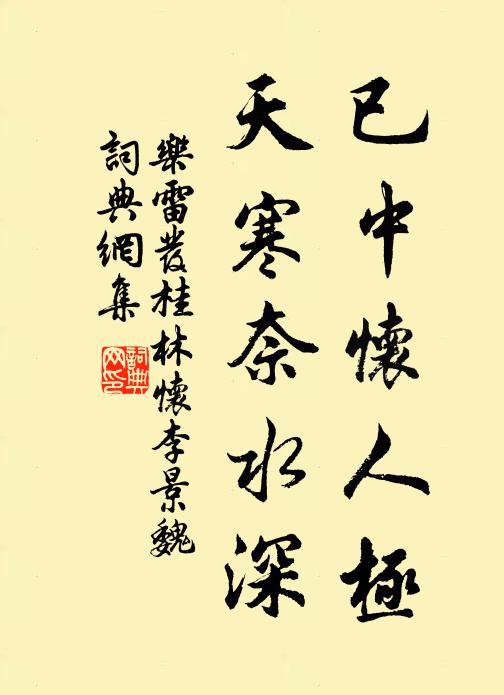 已中懷人極
天寒奈水深
樂雷發桂林懷李景魏
詞典網集
詞典网印